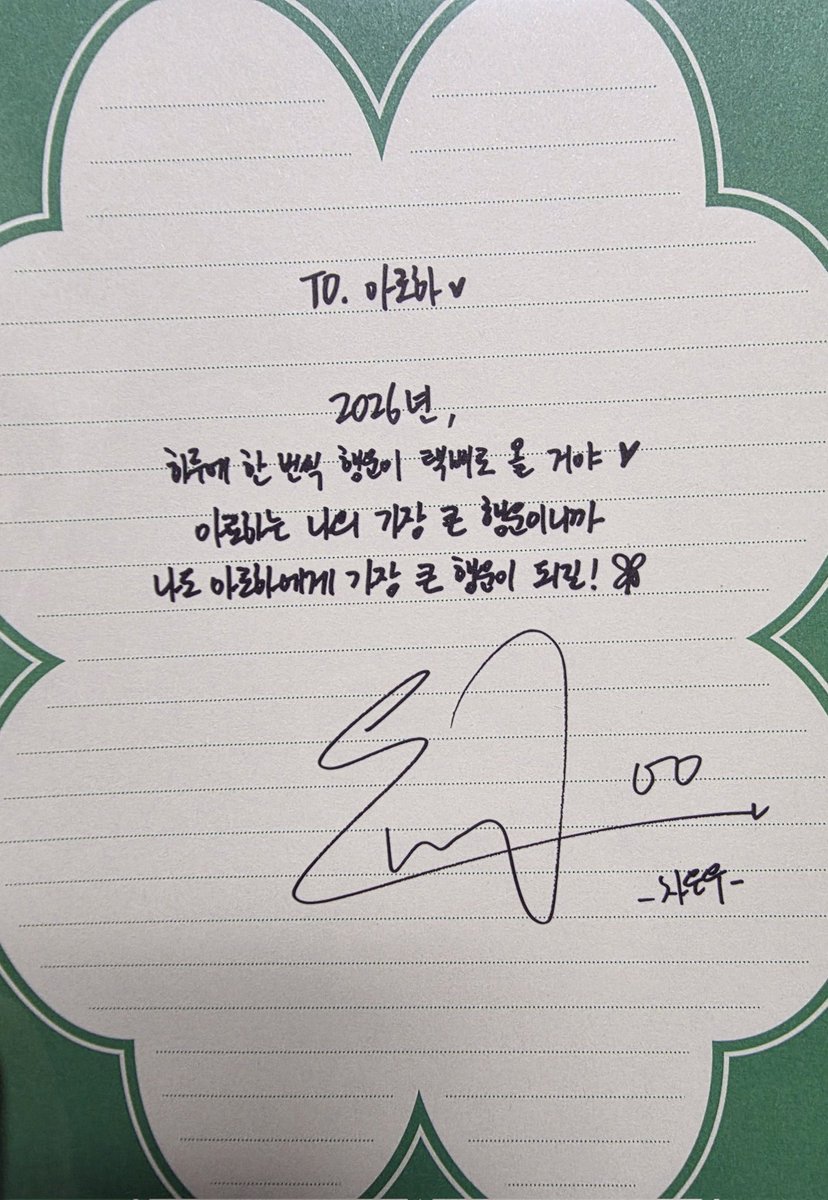 TO. 아로하♥
2026년,
하루에 한 번씩 행운이 택배로 올 거야 ♥
아로하는 나의 가장 큰 행운이니까
나도 아로하에게 가장 큰 행운이 되길! 🍀
-차은우-